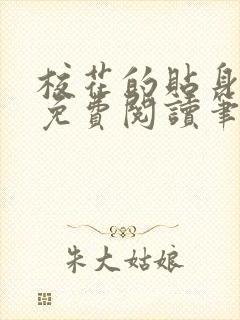 校花的貼身
免費閱讀筆
朱大姑娘